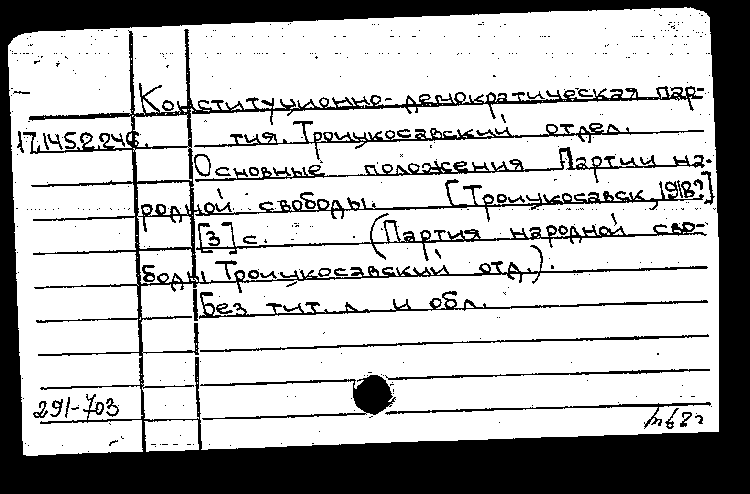 Конституционно-демократическая пар-
17.145.2.246. тия. Троицкосавский отдел.
Основные положения Партии на-
родной свободы. [Троицкосавск, 1918?]
[3] с. (Партия народной сво-
боды. Троицкосавский отд.).
Без тит. л. и обл.
291-703